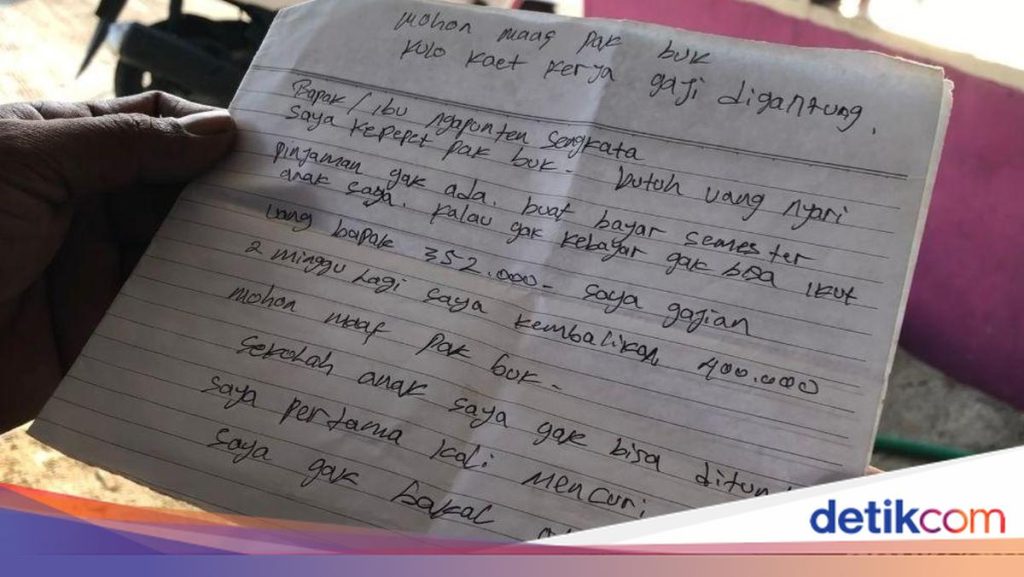 mohon maaf pak buk
kulo kaet kerja gaji digantung.
Bapak/ibu ngapunten sengkata
saya kepepet pak buk. butuh uang nyari
pinjaman gak ada. buat bayar semester
anak saya. kalau gak kebayar gak bisa ikut
uang bapak 352.000- saya gajian
2 minggu lagi saya kembalikan 400.000
mohon maaf pak buk-
sekolah anak saya gak bisa
saya pertama kali mencuri
saya gak bakal
detikcom